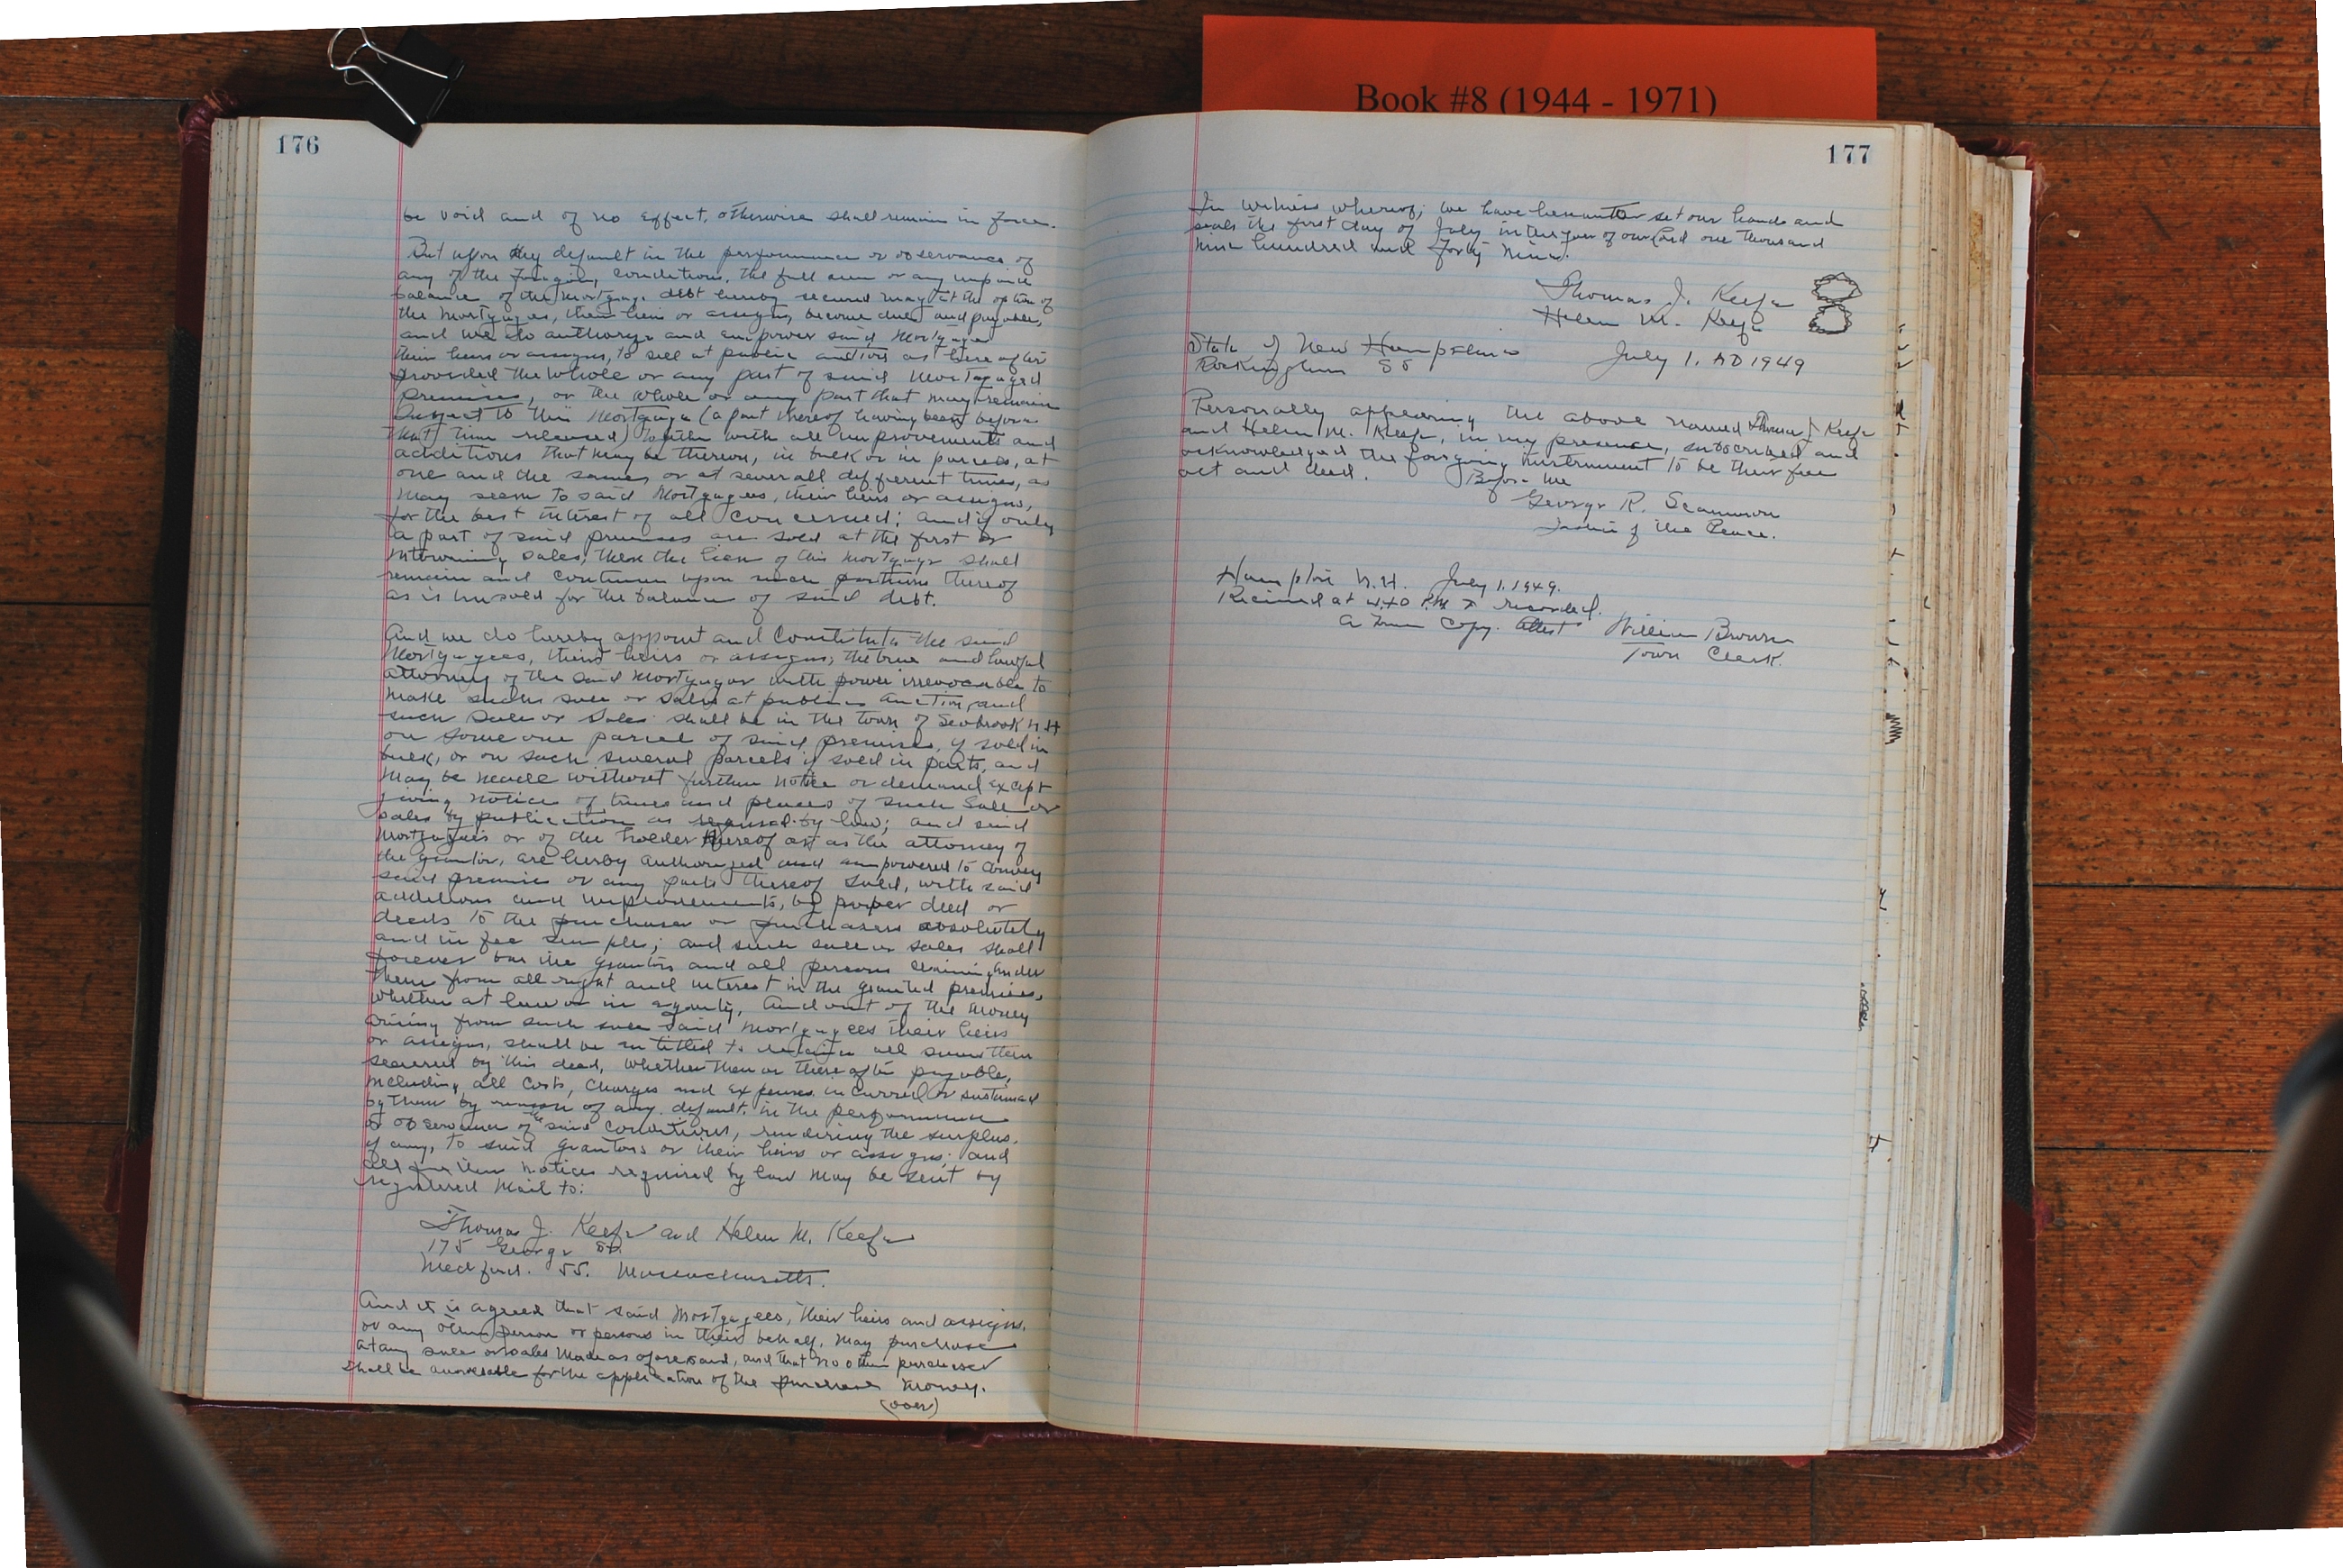 Book #8 (1944 - 1971)
176
be void and of no effect, otherwise shall remain in force.
But upon any default in the performance or observance of
any of the foregoing conditions, the full sum or any unpaid
balance of the mortgage debt hereby secured may at the option of
the Mortgagees, their heirs or assigns, become due and payable,
and we do authorize and empower said Mortgagees
their heirs or assigns, to sell at public auction as hereafter
provided the whole or any part of said Mortgaged
premises, or the whole or any part that may remain
subject to this Mortgage (a part thereof having been before
that time released) together with all improvements and
additions that may be thereon, in bulk or in parcels, at
one and the same, or at severall different times, as
may seem to said Mortgagees, their heirs or assigns,
for the best interest of all concerned; and if only
a part of said premises are sold at the first or
intervening sales, then the lien of this mortgage shall
remain and continue upon such portions thereof
as is unsold for the balance of said debt.
And we do hereby appoint and Constitute the said
Mortgagees, their heirs or assigns, the true and lawful
attorney of the said Mortgagor with power irrevocable to
make such sale or sales at public auction, and
such sale or sales shall be in the town of Seabrook N.H
on some one parcel of said premises, if sold in
bulk, or on such several parcels if sold in parts, and
may be made without further notice or demand except
giving notice of times and places of such Sale or
sales by publication as required by law; and said
mortgagees or of the holder thereof as the attorney of
the grantor, are herby authorized and empowered to convey
said premises or any parts thereof sold, with said
additions and improvements, by proper deed or
deeds to the purchaser or purchasers absolutely
and in fee simple; and such sale or sales shall
forever bar the grantors and all persons claiming under
them from all right and interest in the granted premises,
whether at law or in equity, And out of the money
arising from such sale said mortgagees their heirs
or assigns, shall be intitled to retain all sums then
secured by this deed, whether then or thereafter payable,
including all costs, charges and expenses incurred or sustained
by them by reason of any default in the performance
or observance of the said conditions, rendering the surplus,
if any, to said grantors or their heirs or assigns; and
all further notices required by law may be sent by
registered mail to:
Thomas J. Keefe and Helen M. Keefe
175 George St.
Medford. 55. Massachusetts.
And it is agreed that said Mortgagees, their heirs and assigns,
or any other person or persons in their behalf, may purchase
at any sale or sales made as aforesaid, and that no other purchaser
shall be answerable for the application of the purchase money.
(over)
177
In witness whereof, we have hereunto set our hands and
seals the first day of July in the year of our Lord one thousand
nine hundred and forty nine.
Thomas J. Keefe
Helen M. Keefe
State of New Hampshire
Rockingham SS July 1. AD 1949
Personally appearing the above named Thomas J. Keefe
and Helen M. Keefe, in my presence, subscribed and
acknowledged the forgoing instrument to be their free
act and deed. Before Me
George R. Scammon
Justice of the Peace.
Hampton N.H. July 1. 1949.
Recieved at 4.40 P.M & recorded.
A true copy. Attest William Brown
Town Clerk.